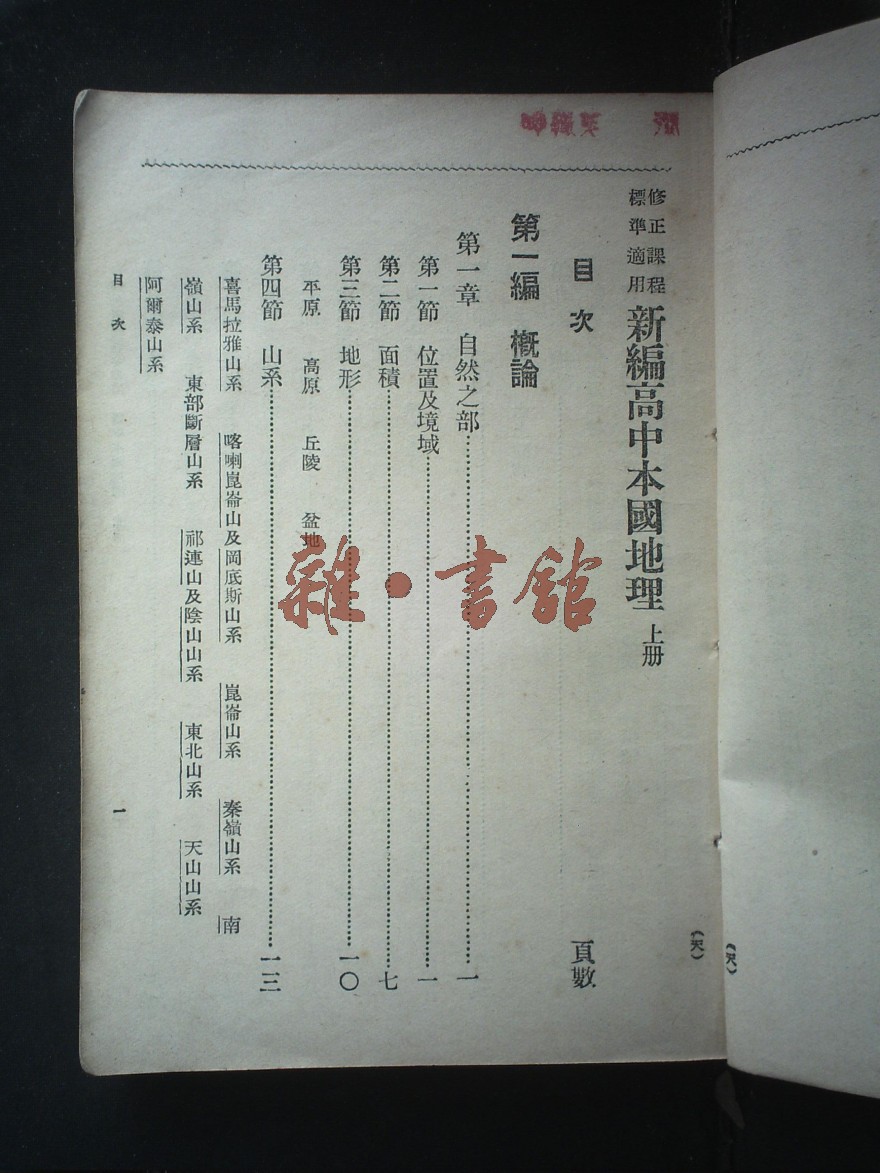 修正課程標準適用 新編高中本國地理 上册
目次 頁數
第一編 概論
第一章 自然之部 一
第一節 位置及境域 一
第二節 面積 七
第三節 地形 一〇
平原 高原 丘陵 盆地
第四節 山系 一三
喜馬拉雅山系 喀喇崑崙山及岡底斯山系 崑崙山系 秦嶺山系 南
嶺山系 東部斷層山系 祁連山及陰山山系 東北山系 天山山系
阿爾泰山系
目次 一
雜·書館